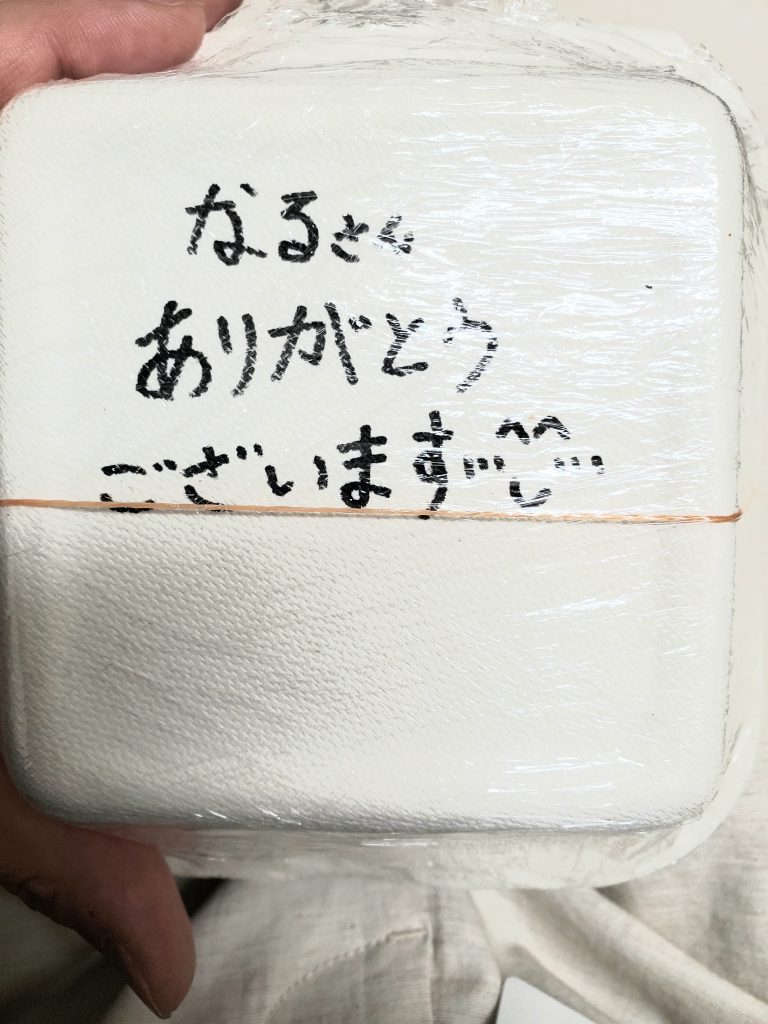 なるさん
ありがとう
ございます